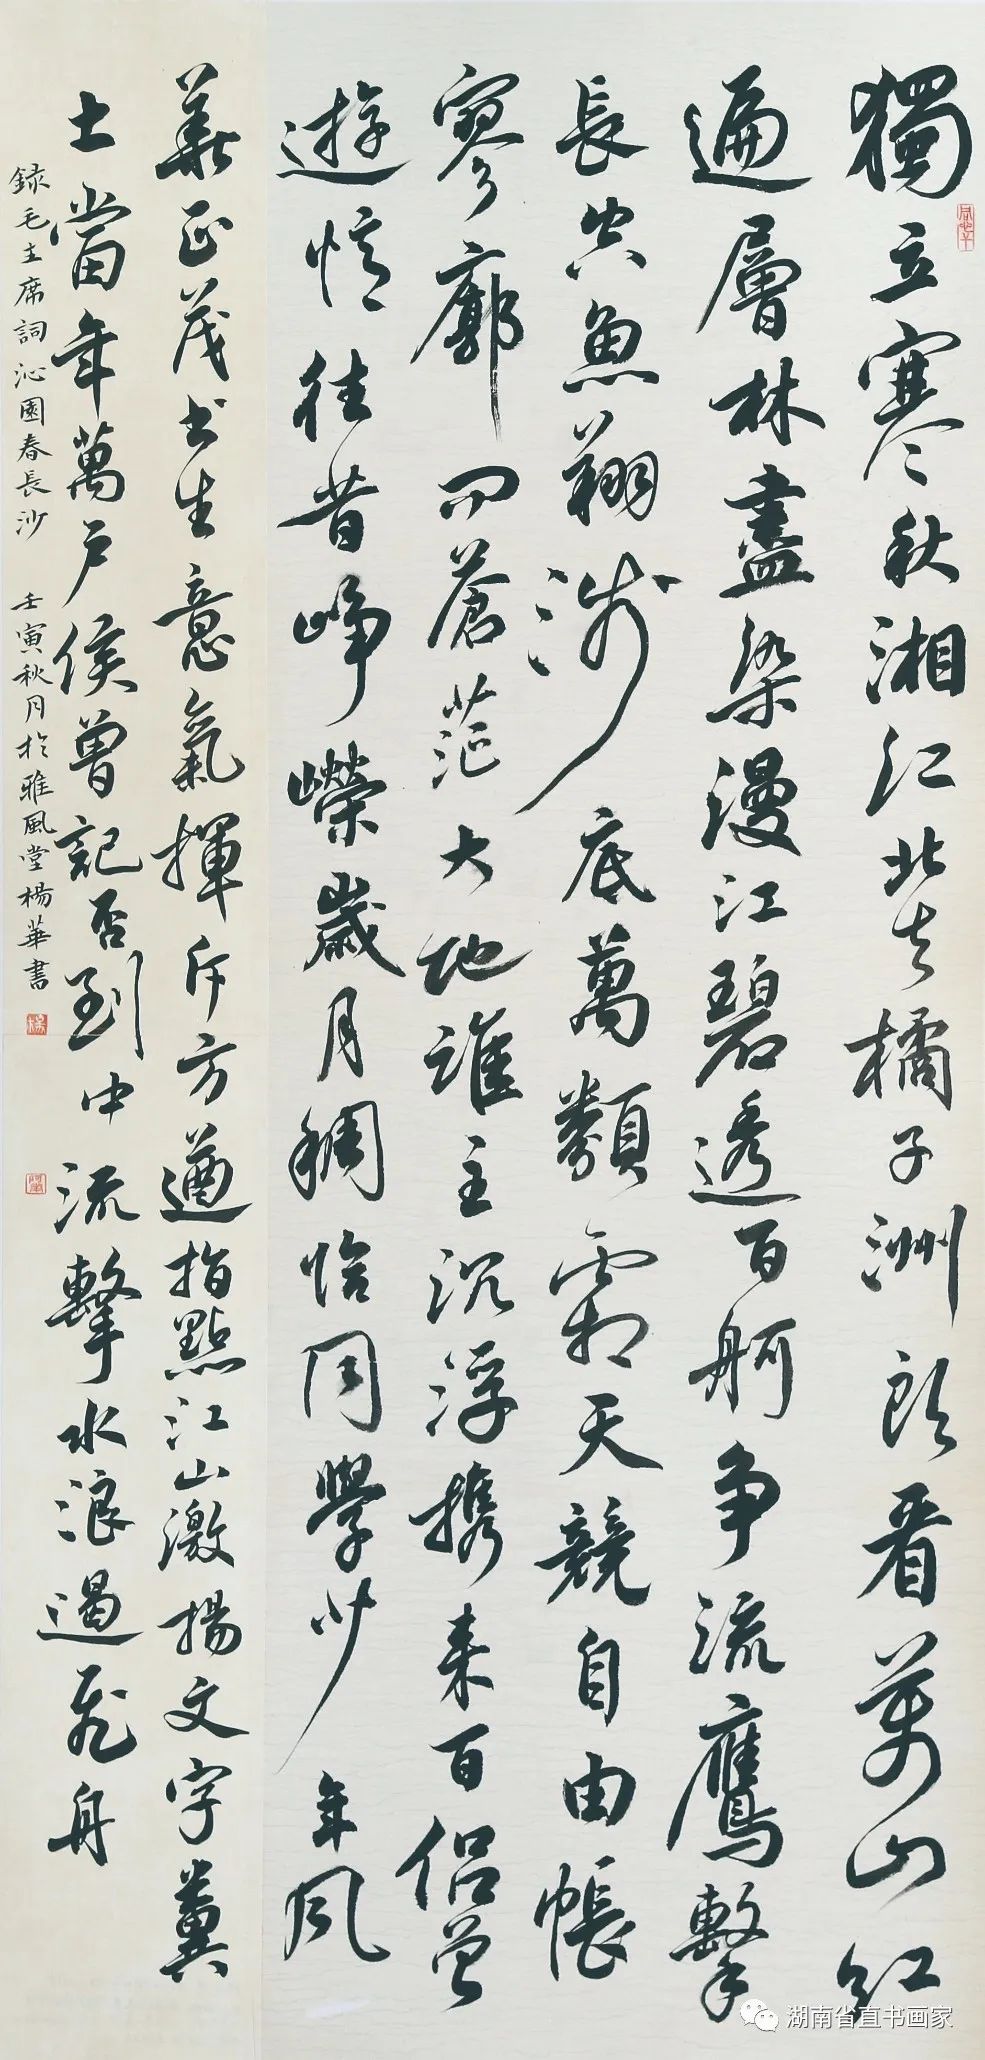 獨立寒秋湘江北去橘子洲头看萬山红
遍層林盡染漫江碧透百舸争流鷹擊
長空魚翔浅底萬類霜天競自由悵
寥廓问蒼茫大地誰主沉浮携来百侣曾
遊憶往昔峥嶸歲月稠恰同學少年风
華正茂书生意氣揮斥方遒指點江山激揚文字糞
土當年萬户侯曾記否到中流擊水浪遏飛舟
録毛主席詞沁園春長沙 壬寅秋月於雅風堂楊華書
湖南省直书画家